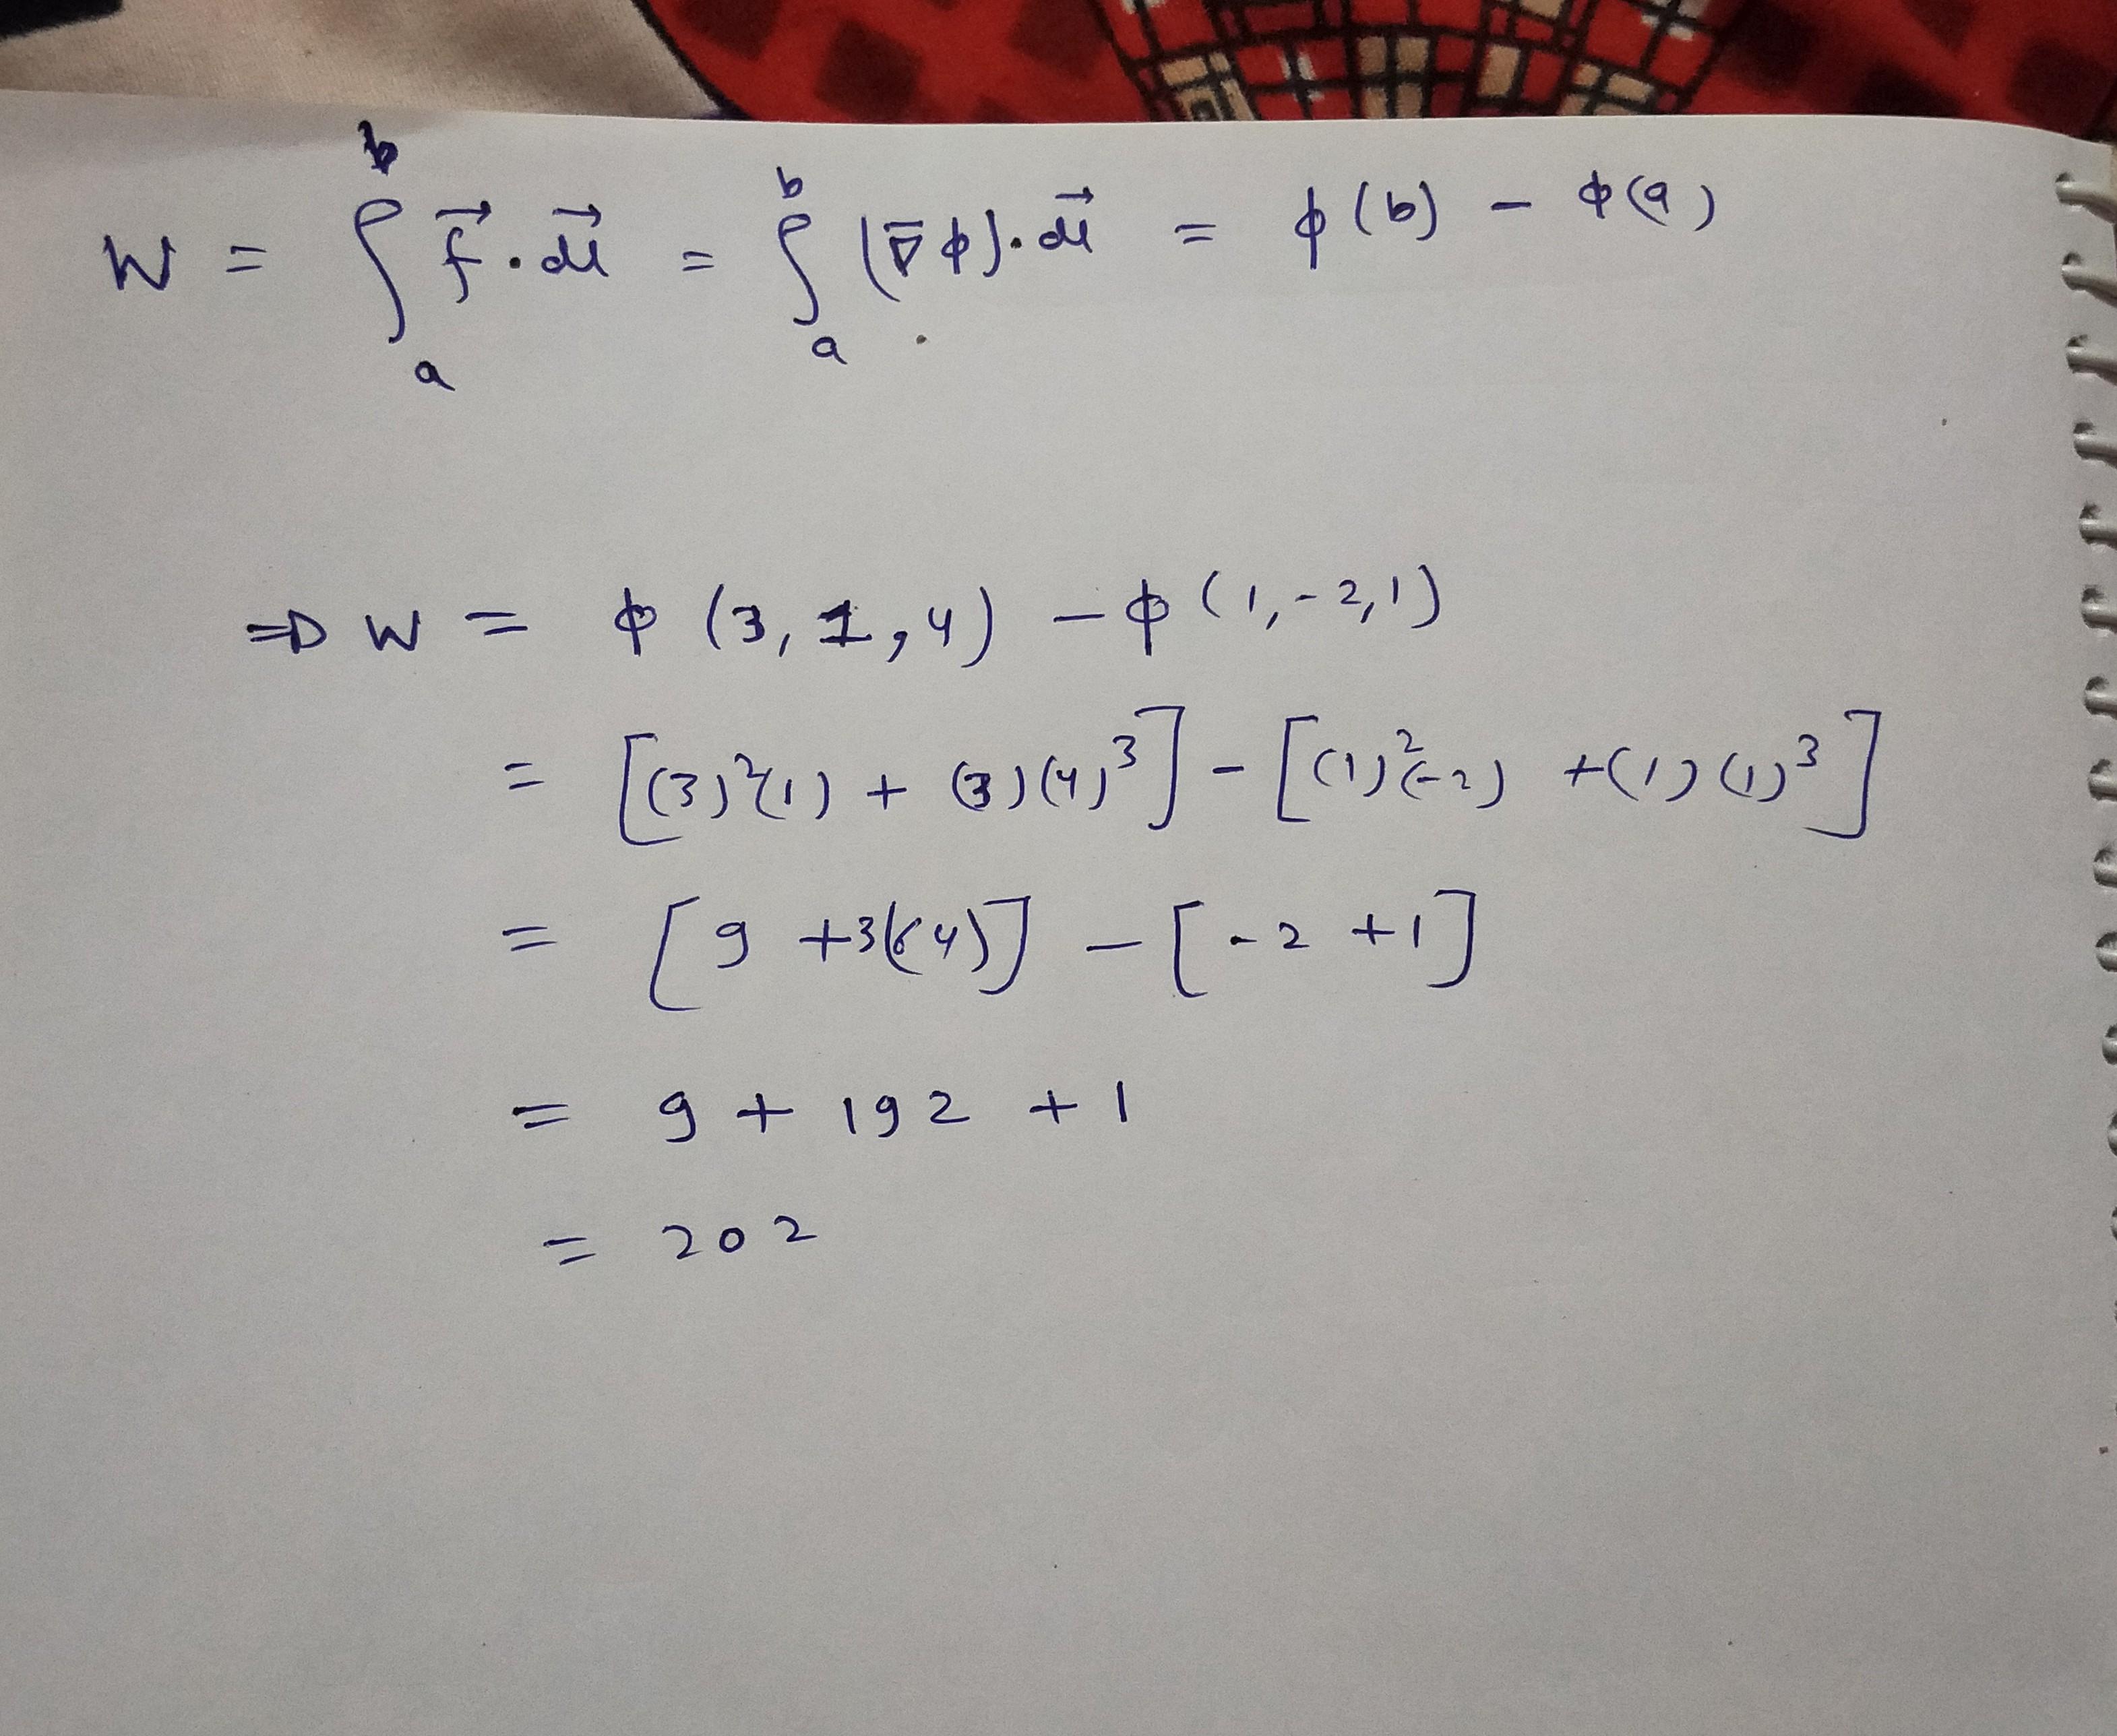 W = ∫ₐᵇ f⃗ · dr⃗ = ∫ₐᵇ (∇̄ϕ) · dr⃗ = ϕ(b) − ϕ(a)
⇒ W = ϕ (3, 1, 4) − ϕ (1, -2, 1)
= [(3)²(1) + (3)(4)³] − [(1)²(-2) + (1)(1)³]
= [9 + 3(64)] − [-2 + 1]
= 9 + 192 + 1
= 202